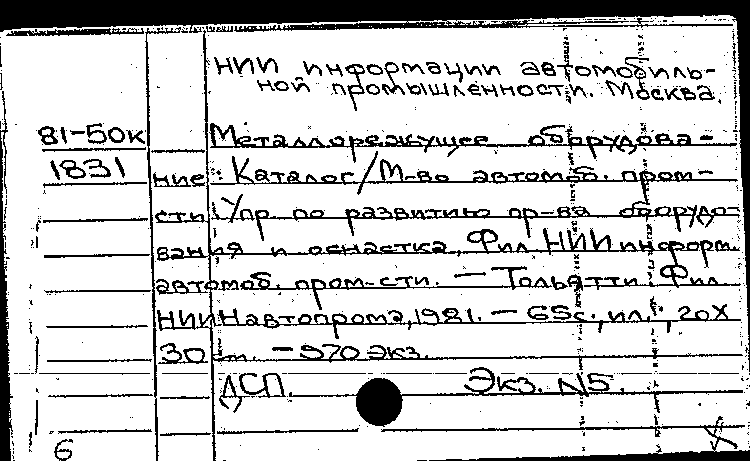 НИИ информации автомобиль-
ной промышленности. Москва.
81-50к Металлорежущее оборудова-
1831 ние: Каталог/М-во автомоб. пром-
сти. Упр. по развитию пр-ва оборудо-
вания и оснастка, Фил НИИ информ.
автомоб. пром-сти. — Тольятти Фил.
НИИНавтопрома, 1981. — 65с., ил., 20X
30 см. — 970 экз.
ДСП. Экз. N5.
6